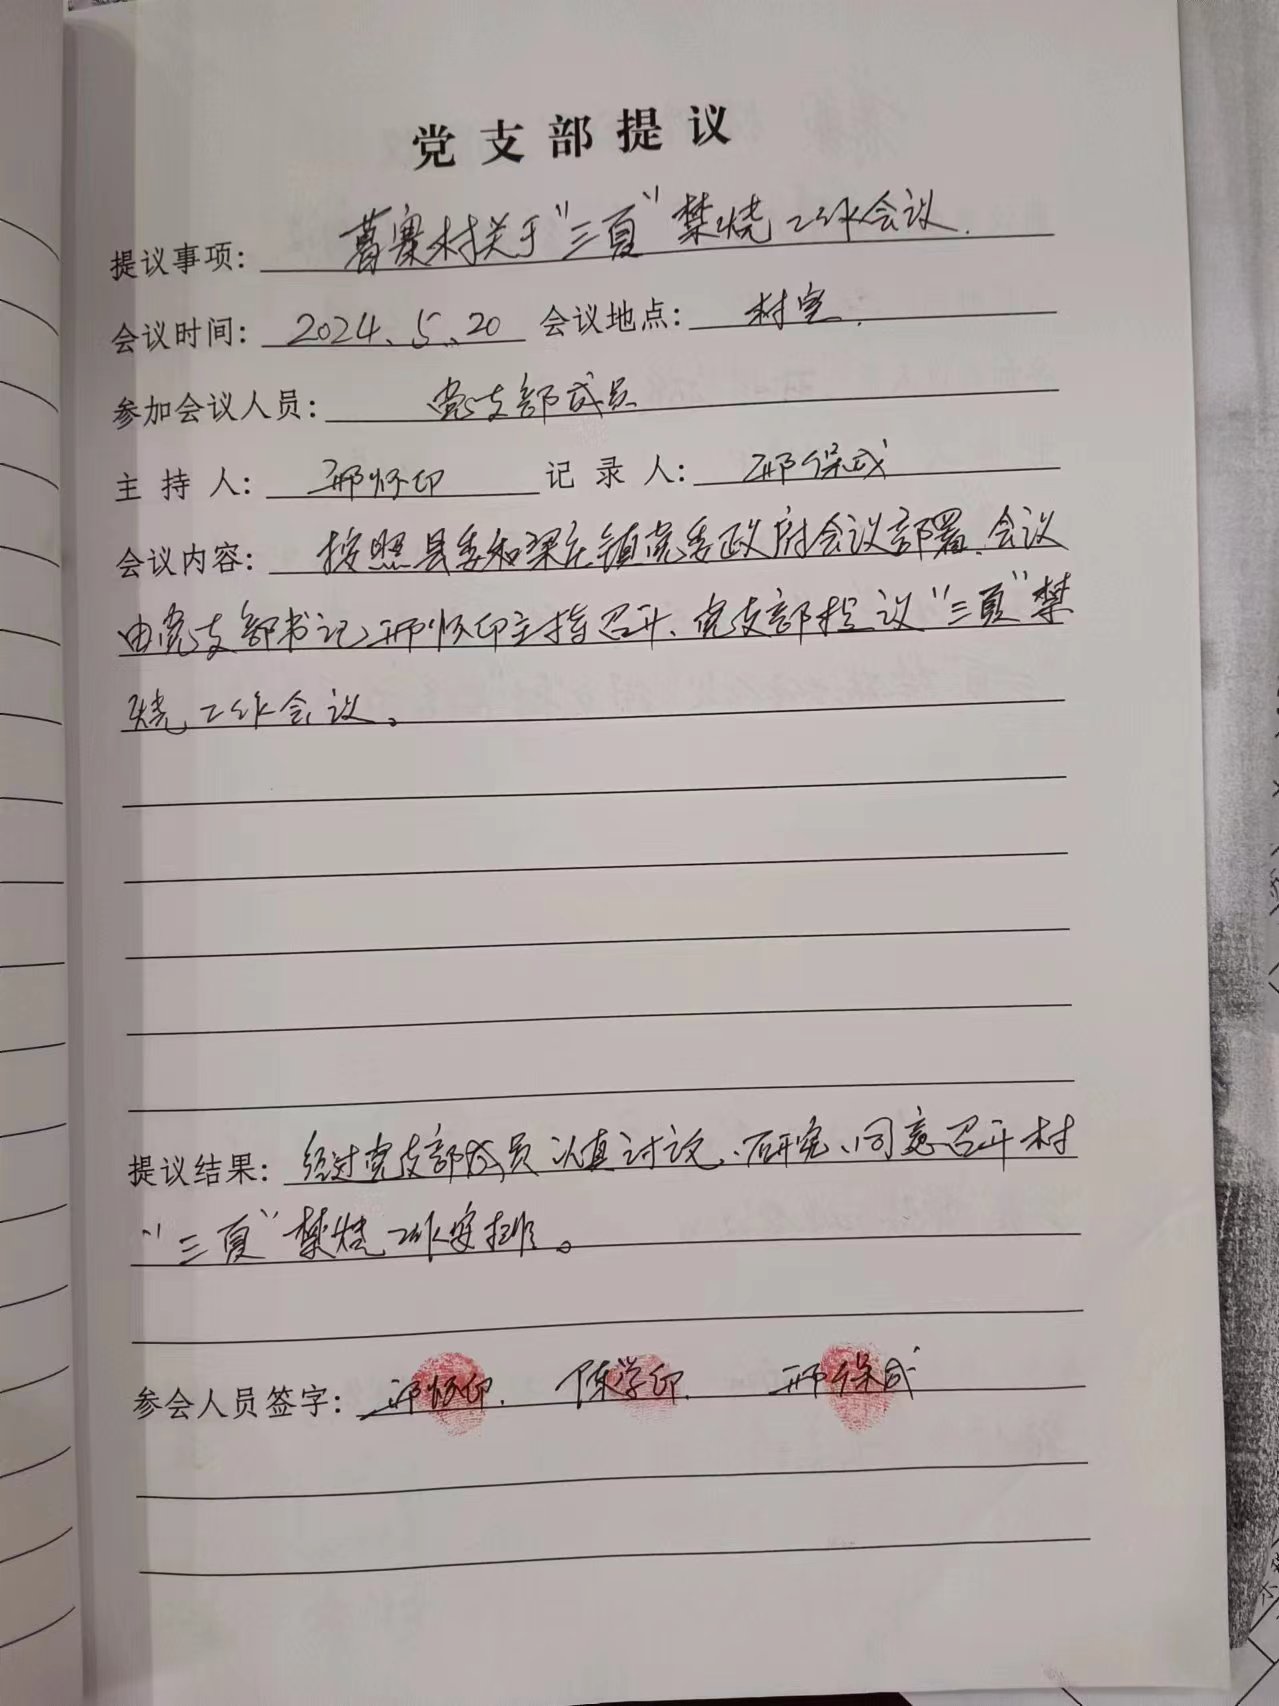 党支部提议
提议事项：葛寨村关于“三夏”禁烧工作会议.
会议时间：2024、5、20 会议地点：村室.
参加会议人员：党支部成员
主持人：邢怀印 记录人：邢保成
会议内容：按照县委和梁庄镇党委政府会议部署、会议
由党支部书记邢怀印主持召开、党支部提议“三夏”禁
烧工作会议。
提议结果：经过党支部成员认真讨论、研究、同意召开村
“三夏”禁烧工作安排。
参会人员签字：邢怀印. 陈学印. 邢保成